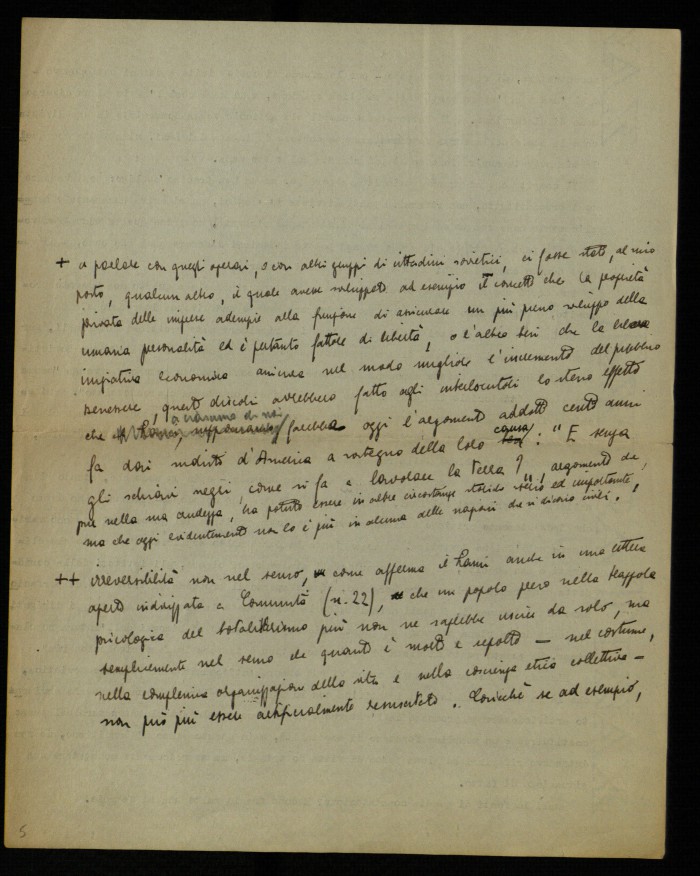 + a parlare con quegli operai, o con altri gruppi di cittadini sovietici, ci fosse stato, al mio
posto, qualcun altro, il quale avesse sviluppato ad esempio il concetto che la proprietà
privata delle imprese adempie alla funzione di assicurare un più pieno sviluppo della
umana personalità ed è pertanto fattore di libertà, o l'altro bensì che la libera
iniziativa economica assicura nel modo migliore l'incremento del pubblico
benessere, questi discorsi avrebbero fatto agli interlocutori lo stesso effetto
che a ciascuno di noi farebbe oggi l'argomento addotto cento anni
fa dai nordisti d'America a sostegno della loro causa: "E senza
gli schiavi negri, come si fa a lavorare la terra?", argomento che,
pur nella sua crudezza, ha potuto essere in altre circostanze storiche serio ed importante,
ma che oggi evidentemente non lo è più in alcuna delle nazioni che si dicono civili.
++ irreversibilità non nel senso, come afferma il Zanni anche in una lettera
aperta indirizzata a Comunità (n. 22), che un popolo preso nella trappola
psicologica del totalitarismo più non ne saprebbe uscire da solo, ma
semplicemente nel senso che quanto è morto e sepolto — nel costume,
nella complessiva organizzazione della vita e nella coscienza etica collettiva —
non può più essere artificialmente resuscitato. Cosicché se ad esempio,
5